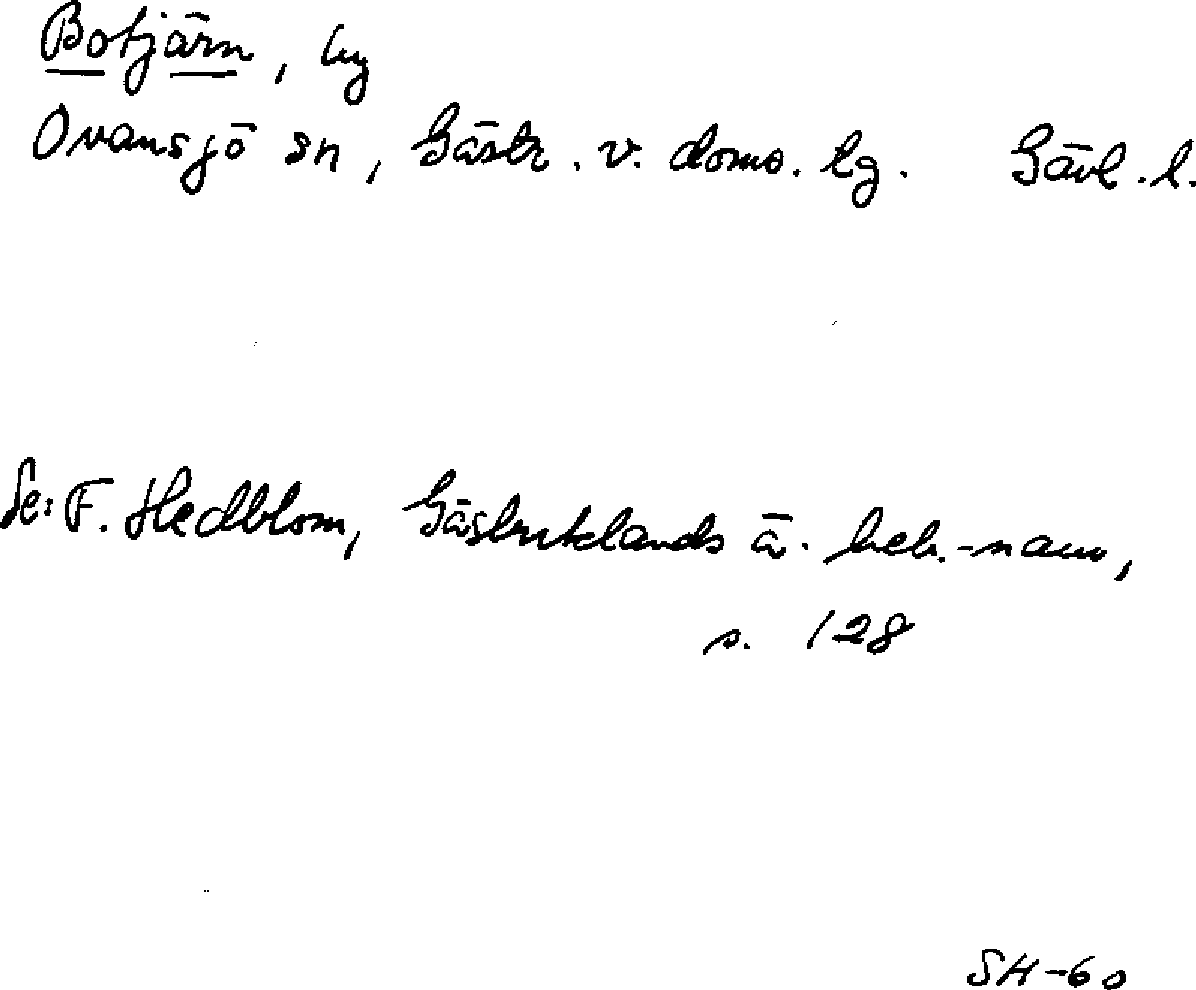 Botjärn, by
Ovansjö sn, Gästr. v. doms. lg. Gävl. l.
Se: F. Hedblom, Gästriklands ä. beb.-namn,
s. 128
SH-60